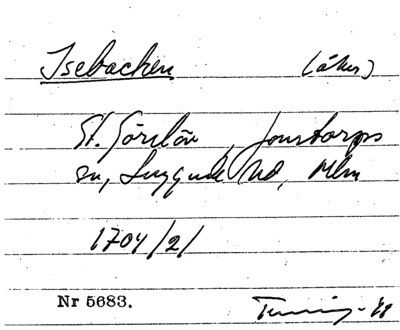 Isebacken (åker)
St. Görslöv, Jonstorps
sn, Luggude hd, Mlm
1704/2/
Nr 5683.